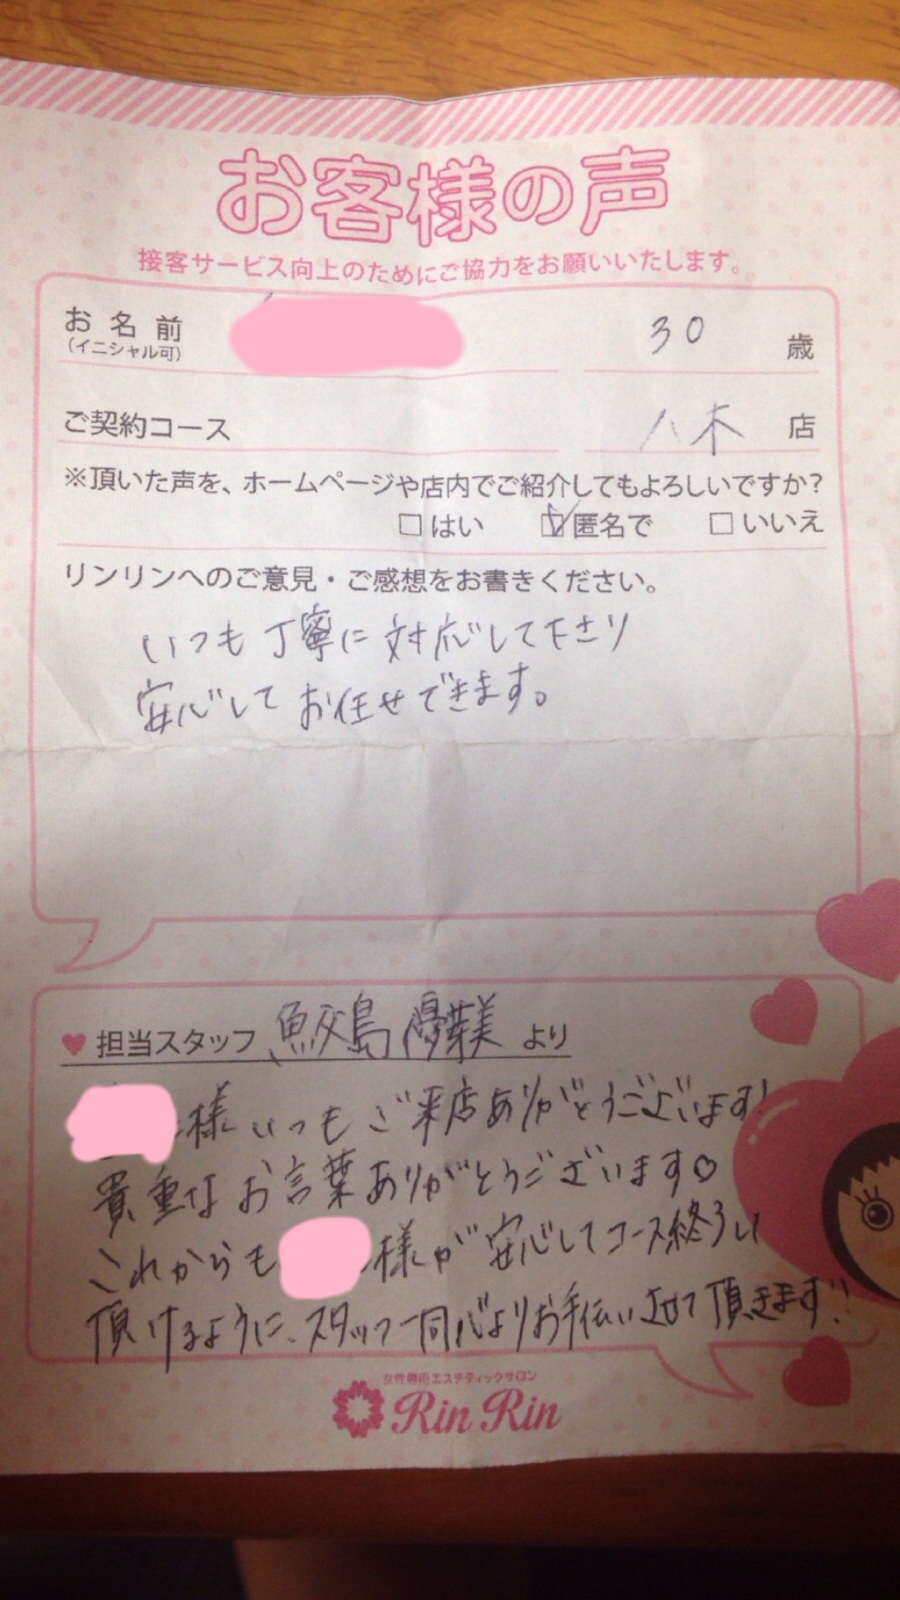 お客様の声
接客サービス向上のためにご協力をお願いいたします。
お名前 30 歳
(イニシャル可)
ご契約コース 八木 店
※頂いた声を、ホームページや店内でご紹介してもよろしいですか?
□はい ☑匿名で □いいえ
リンリンへのご意見・ご感想をお書きください。
いつも丁寧に対応して下さり
安心してお任せできます。
♥担当スタッフ 鮫島 優芽美 より
様いつもご来店ありがとうございます!
貴重なお言葉ありがとうございます♡
これからも 様が安心してコース終了い
頂けるように、スタッフ一同心よりお手伝いさせて頂きます!!
女性専用エステティックサロン
Rin Rin